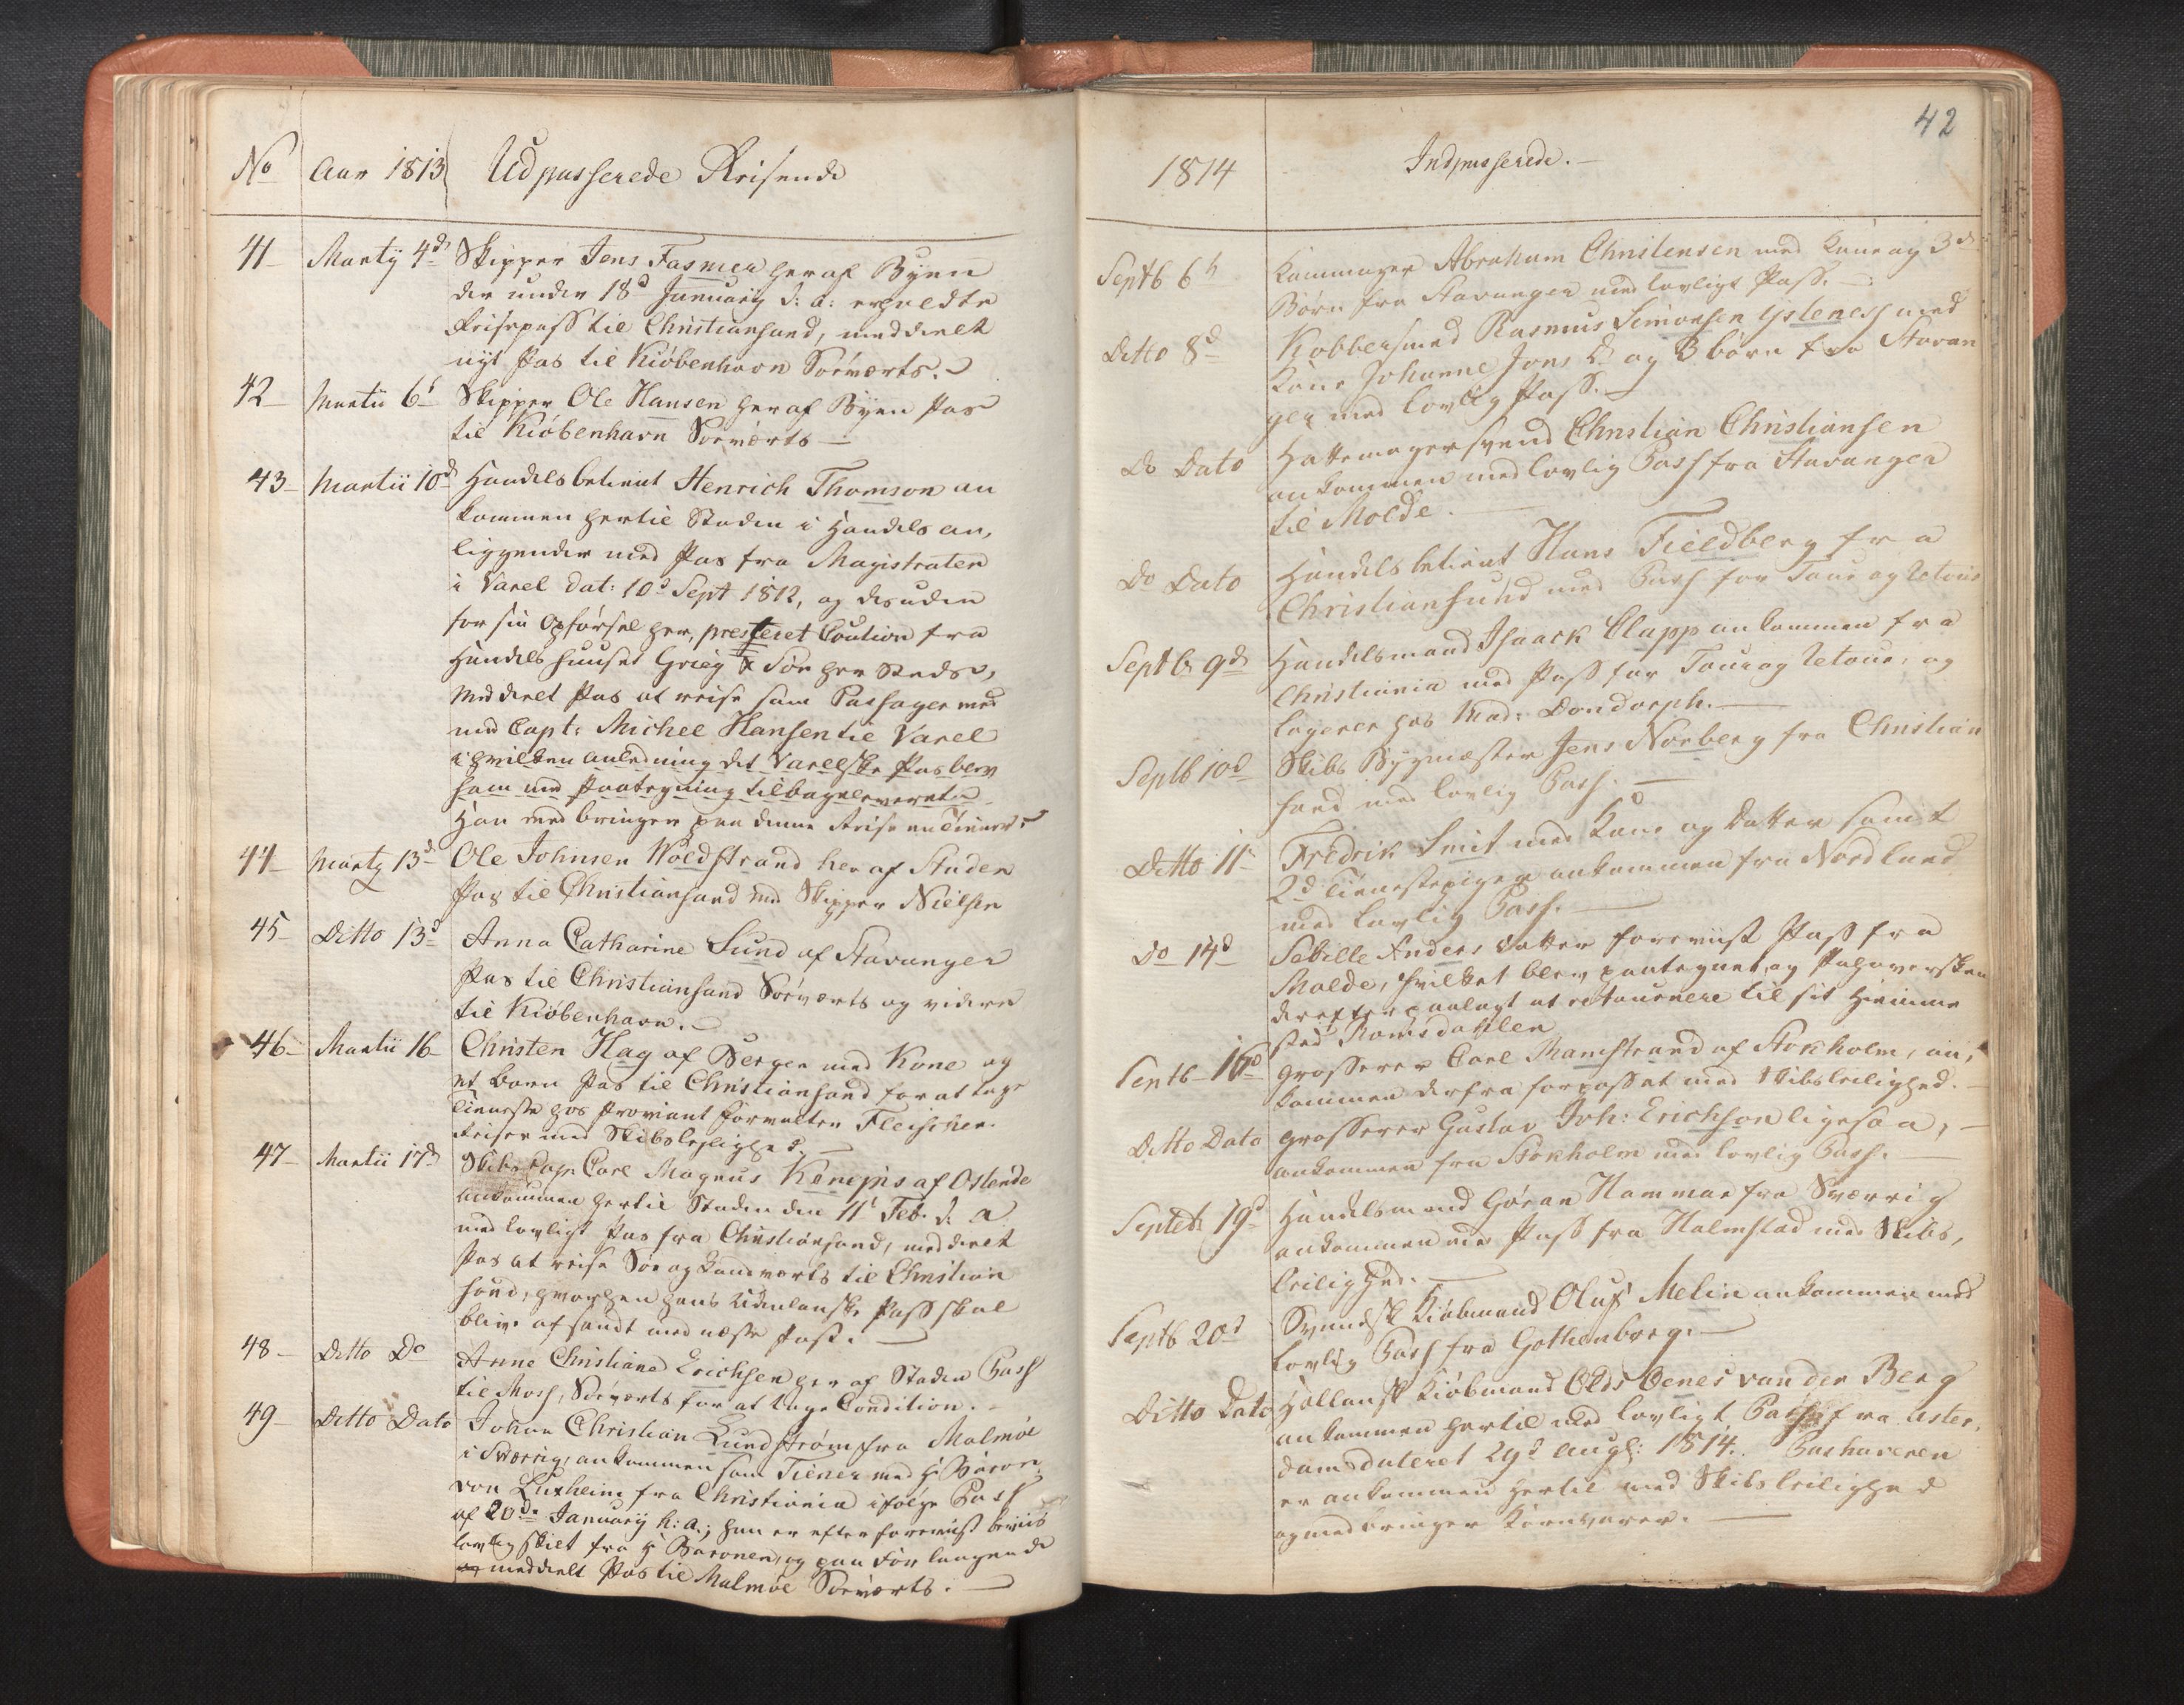 No Aar 1813 Udpasserede Reisende
41 Martij 4d Skipper Jens Fasmer her af Byen
der under 18d Januarij d: a: erholdte
Reisepass til Christiansand, meddeelt
nyt Pas til Kiöbenhavn Söeværts.
42 Martii 6t Skipper Ole Hansen her af Byen Pas
til Kiöbenhavn Söeværts
43 Martii 10d Handelsbetient Henrich Thomson an
kommen hertil Staden i Handels an,
liggender med Pas fra Magistraten
i Varel dat: 10d Sept 1812, og desuden
for sin Opförsel her, presteret Caution fra
Handels huuset Grieg & Sön her Steds,
Meddeelt Pas at reise som Passager med
med Capt: Michel Hansen til Varel
i hvilken anledning det Varelske Pas blev
ham med Paategning tilbageleveret
Han medbringer paa denne Reise en Tiener
44 Martij 13d Ole Johnsen Woldstrand her af Staden
Pas til Christiansand med Skipper Nielsen
45 Ditto 13d Anna Catharine Lund af Stavanger
Pas til Christiansand Söeværts og videre
til Kiöbenhavn.
46 Martii 16 Christen Hag af Bergen med Kone og
et barn Pas til Christiansand for at tage
Tieneste hos Proviant forvalter Fleischer
Reiser med Skibsleylighed.
47 Martii 17d Skibs Cap Carl Magnus Kenepis af Ostende
ankommen hertil Staden den 11t Feb. d. a
med lovligt Pas fra Christiansand, meddeelt
Pas at reise Söe og Landværts til Christian
sand, hvorhen hans Udenlandske Pass skal
blive afsendt med næste Post.
48 Ditto Do Anne Christiane Erichsen her af Staden Pass
til Moss, Söeværts for at tage Condition.
49 Ditto Dato Johan Christian Lundström fra Malmöe
i Sverrig, ankommen som Tiener med Hr Baron
von Luxheim fra Christiania ifölge Pass
af 20de Januarij h: a:; han er efter foreviist beviis
lovlig skilt fra Hr Baronen, og paa Forlangende
meddeelt Pas til Malmöe Söeværts.
42
1814 Indpasserede.
Septb 6t Kammager Abraham Christensen med Kone og 3d
Börn fra Stavanger med lovligt Pass.
Ditto 8d Kobbersmed Rasmus Simonsen Ysteness med
Kone Johanne Jons D og 3 börn fra Stavan
ger med lovlig Pass.
Do Dato Hattemagersvend Christian Christiansen
ankommen med lovlig Pass fra Stavanger
til Molde.
Do Dato Handelsbetient Hans Fieldberg fra
Christiansund med Pass for Tour og Retour
Septb 9d Handelsmand Isaack Clapp ankommen fra
Christiania med Pass for Tour og Retour, og
logerer hos Mad: Dondorph.
Septb 10d Skibs Bygmester Jens Norberg fra Christian
sand med lovlig Pass.
Ditto 11t Fredrik Smit med Kone og Datter samt
2d Tienestepiger ankommen fra Nordland
med lovlig Pass.
Do 14d Sebille Anders datter foreviist Pass fra
Molde, hvilket blev paategnet, og Pashaversken
derefter paalagt at retournere til sit Hiemme
sted Romsdahlen
Septb 16d Grosserer Carl Mamstrand af Stokholm, an,
kommen derfra forpasset med Skibsleilighed.
Ditto Dato Grosserer Gustav Joh: Erichson ligesaa,
ankommen fra Stokholm med lovlig Pass.
Septeb 19d Handelsmand Göran Hammar fra Sverrig
ankommen med Pass fra Halmstad med Skibs,
leilighed.
Septb 20d Svensk Kiöbmand Oluf Melin ankommen med
lovlig Pass fra Gothenborg.
Ditto Dato Hollansk Kiöbmand Olds Oenes van der Berg
ankommen hertil med lovligt Pass fra Aster,
dam dateret 29d Augs: 1814. Pashaveren
er ankommen hertil med Skibsleilighed
og medbringer Kornvarer.